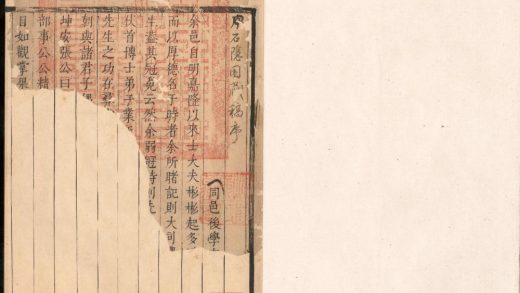 石隱園稿序
同邑後學
余邑自明嘉隆以來士大夫彬彬起多
而以厚德名于時者余所睹記則大司
生蓋其冠冕云然余弱冠時則先
伏首博士弟子業
先生之功在
刻與諸君子
坤安張公曰
部事公公精
目如觀掌果